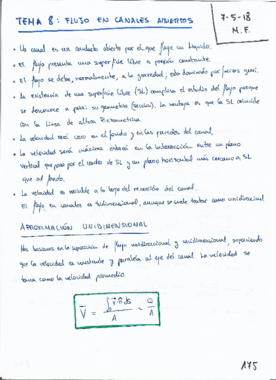 TEMA 8: FLUJO EN CANALES ABIERTOS
7-5-18
M.F.
• Un canal es un conducto abierto por el que fluye un líquido.
• El flujo presenta una superficie libre a presión constante.
• El flujo se debe, normalmente, a la gravedad; está dominado por fuerzas grav.
• La existencia de una superficie libre (SL) complica el estudio del flujo porque
se desconoce a priori su geometría (sección). La ventaja es que la SL coincide
con la línea de altura Piezométrica.
• La velocidad será cero en el fondo y en las paredes del canal.
• La velocidad será máxima estará en la intersección entre un plano
vertical que pasa por el centro de SL y un plano horizontal más cercano a SL
que al fondo.
• La velocidad es variable a lo largo de la sección del canal.
El flujo en canales es tridimensional, aunque se suele tratar como unidireccional
APROXIMACIÓN UNIDIMENSIONAL
Nos basamos en la suposición de flujo unidireccional y unidimensional, suponiendo
que la velocidad es constante y paralela al eje del canal. La velocidad se
toma como la velocidad promedio.
V̄ = ∫ v⃗·n⃗ ds / A = Q / A
A75